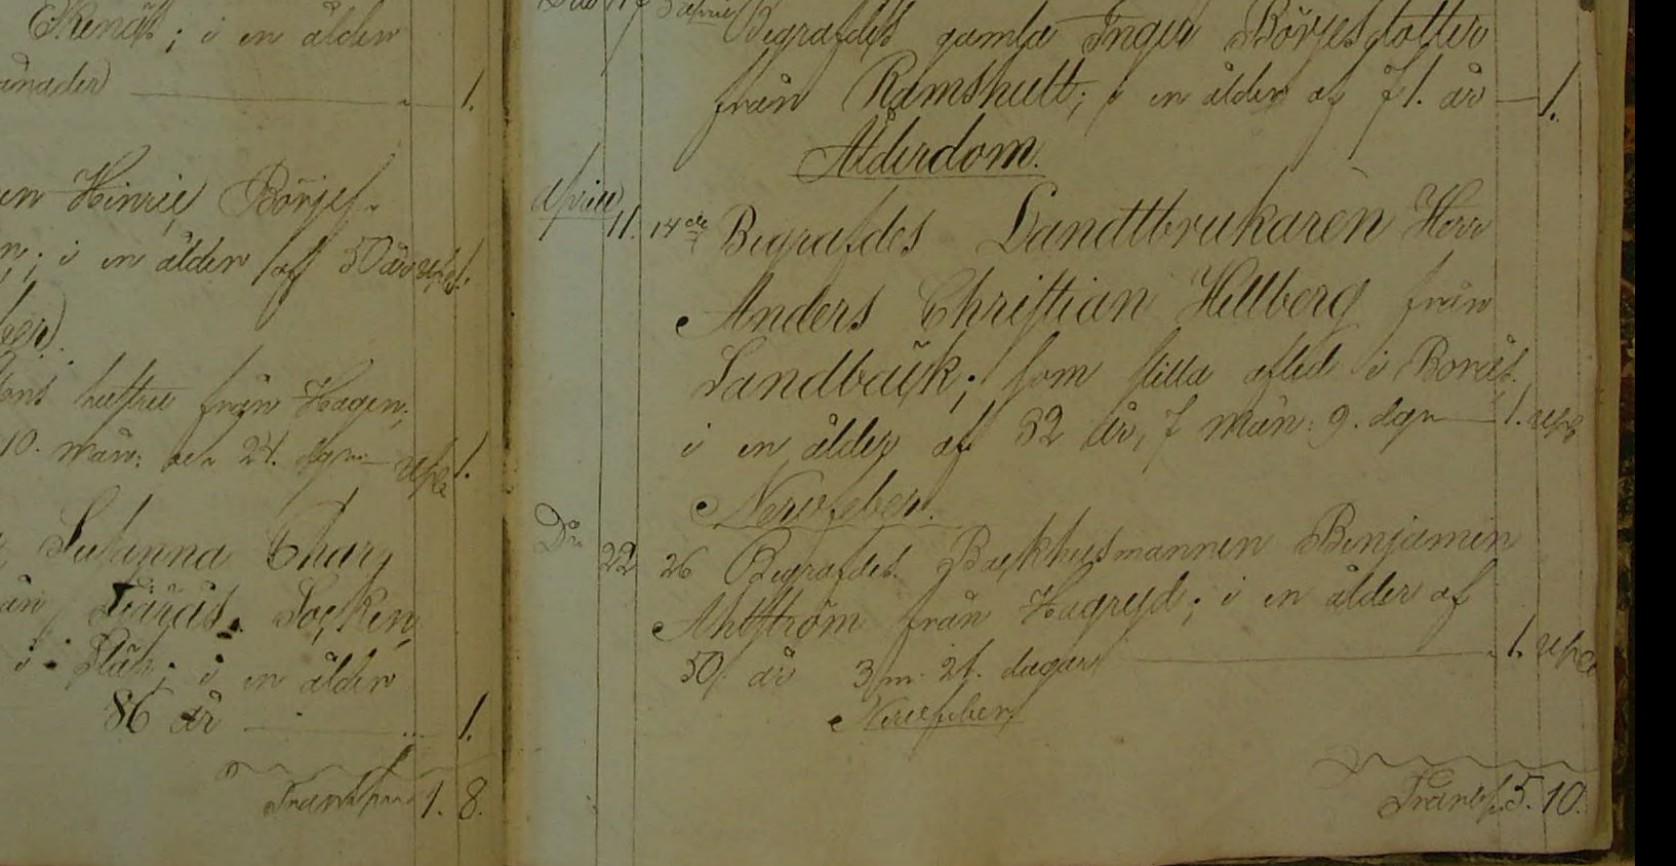 Skenäs; i en ålder
månader 1.
en Hinric Börjes-
n; i en ålder af 50 år 1.
hustru från Hagen;
10. mån: 24. dgr 1.
Susanna Char
Socken,
i en ålder
86 år 1.
Transp 1. 8.
Begrafdes gamla Inger Börjesdotter
från Ramshult; i en ålder af 71. år 1.
Ålderdom.
April 11. 14de Begrafdes Landtbrukaren Herr
Anders Christian Hellberg från
Sandbäck; som stilla afled i Borås
i en ålder af 32 år, 7 mån: 9. dgr 1.
Nervfeber.
Do 22 26 Begrafdes Backhusmannen Benjamin
Ahlström från Hagryd; i en ålder af
50 år 3 m. 21. dagar 1.
Nervfeber
Transp. 5. 10.